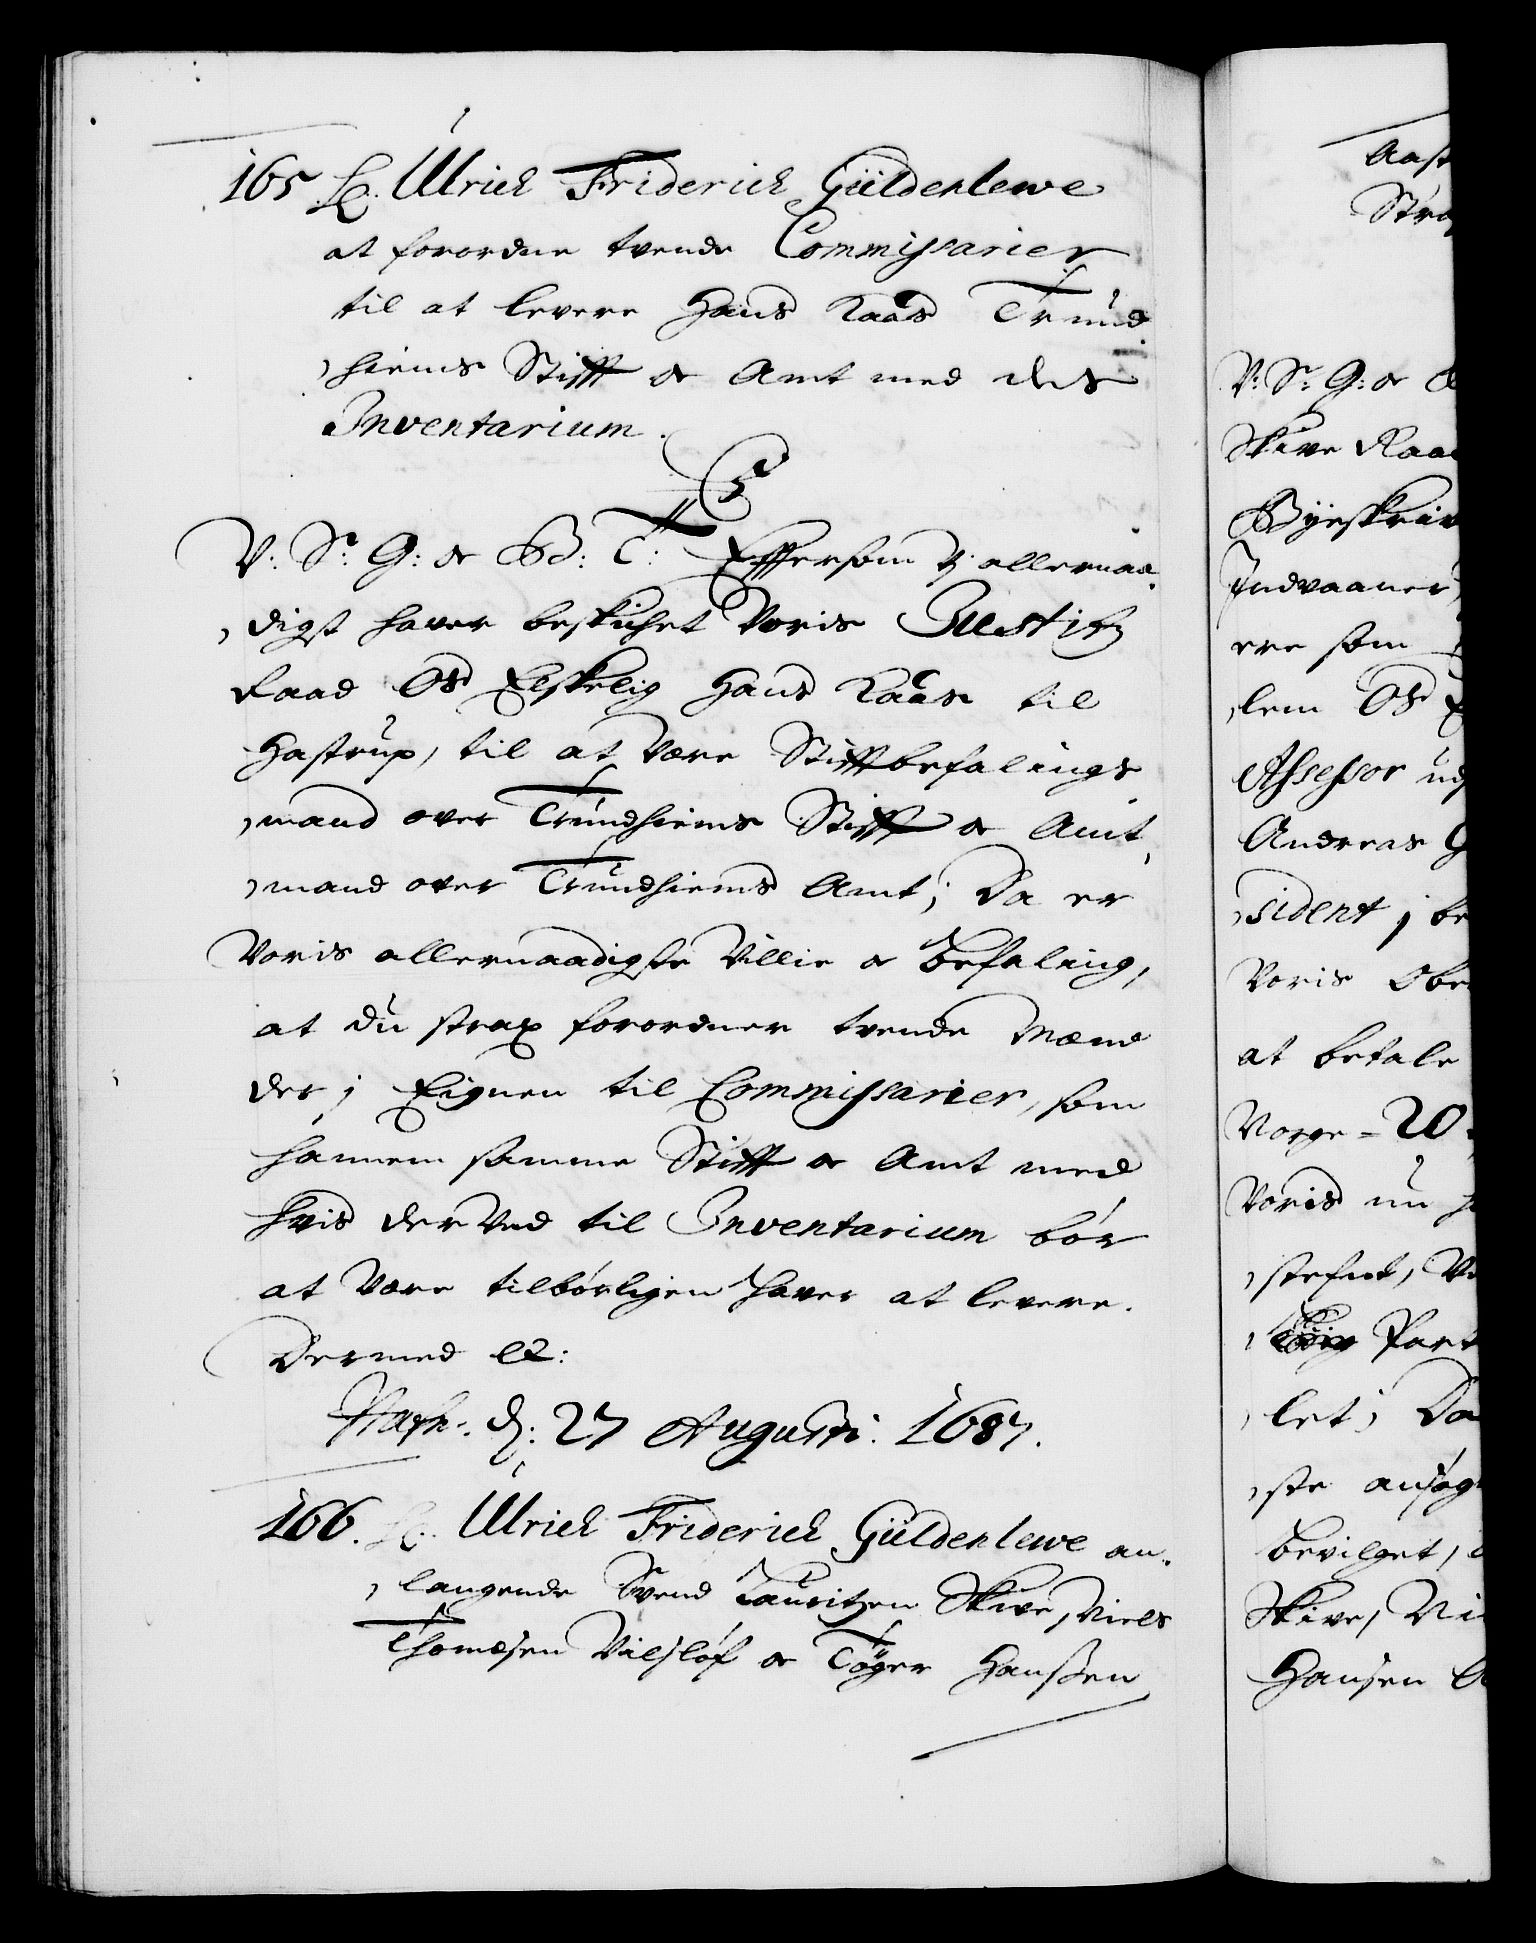 165 Hr: Ulrich Friderich Güldenlewe
at forordne tvende Commissarier
til at levere Hans Kaas Trund
hiems Stifft oc Amt med des
Inventarium.
C 5
V: S: G: oc B: T: Effterson Vj allernaa
digst hafver beskichet Voris Justitz
Raad Os Elskelig Hans Kaas til
Hastrup, til at være Stifftbefalings
mand over Trundhiems Stifft oc Amt
mand over Trundhiems Amt; Da er
Voris allernaadigste Villie oc Befaling,
at du strax forordner tvende Mænd
der j Eignen til Commissarier, som
hannem samme Stifft oc Amt med
hvis der ved til Inventarium bör
at være tilbörligen hafver at levere.
Dermed etc:
Hafn: d: 27 Augusti. 1687.
166. Hr: Ulrich Friderich Güldenlewe an
langende Svend Lauritzen Skive, Niels
Thomesen Vilslöf oc Töger Hanssen
Aast
Stra
V: S: G: oc B
Skive Raad
Byeskriv
Indvaaner
ere som
lem Os E
Assessor ud
Andreas G
sident j be
Voris Obe
at betale
Norge = 20
Voris nu h
stefnt, V
Part
let; Da
ste ansög
bevilget,
Skive, Ni
Hansen A